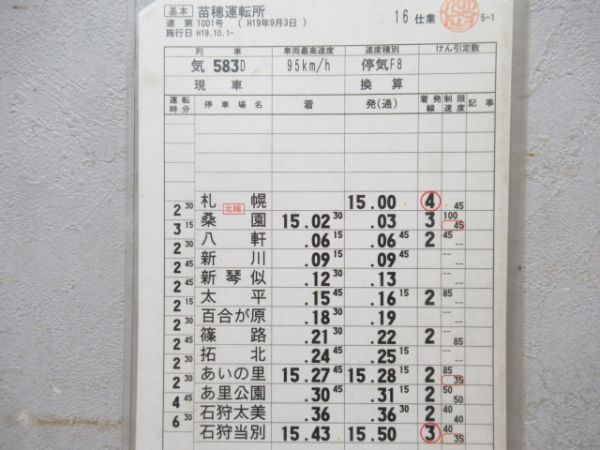 基本 苗穂運転所
達 第 1001号 ( H19年9月3日 ) 16 仕業 5-1
施行日 H19.10.1-
列車 車両最高速度 速度種別 けん引定数
気 583D 95km/h 停気F8
現車 換算
運転時分 停車場名 着 発(通) 着発線 制限速度 記事
札幌 15.00 4 45
2 30 北線
桑園 15.02 30 .03 3 100 45
3 15
八軒 .06 15 .06 45 2 45 --
2 30
新川 .09 15 .09 45 -- --
2 45
新琴似 .12 30 .13 -- --
2 45
太平 .15 45 .16 15 2 85 --
2 15
百合が原 .18 30 .19 -- --
2 30
篠路 .21 30 .22 2 -- 85
2 45
拓北 .24 45 .25 15 -- --
2 30
あいの里 15.27 45 15.28 15 2 85 35
2 30
あ里公園 .30 45 .31 15 2 50 50
4 45
石狩太美 .36 .36 30 2 40 40
6 30
石狩当別 15.43 15.50 3 40 35